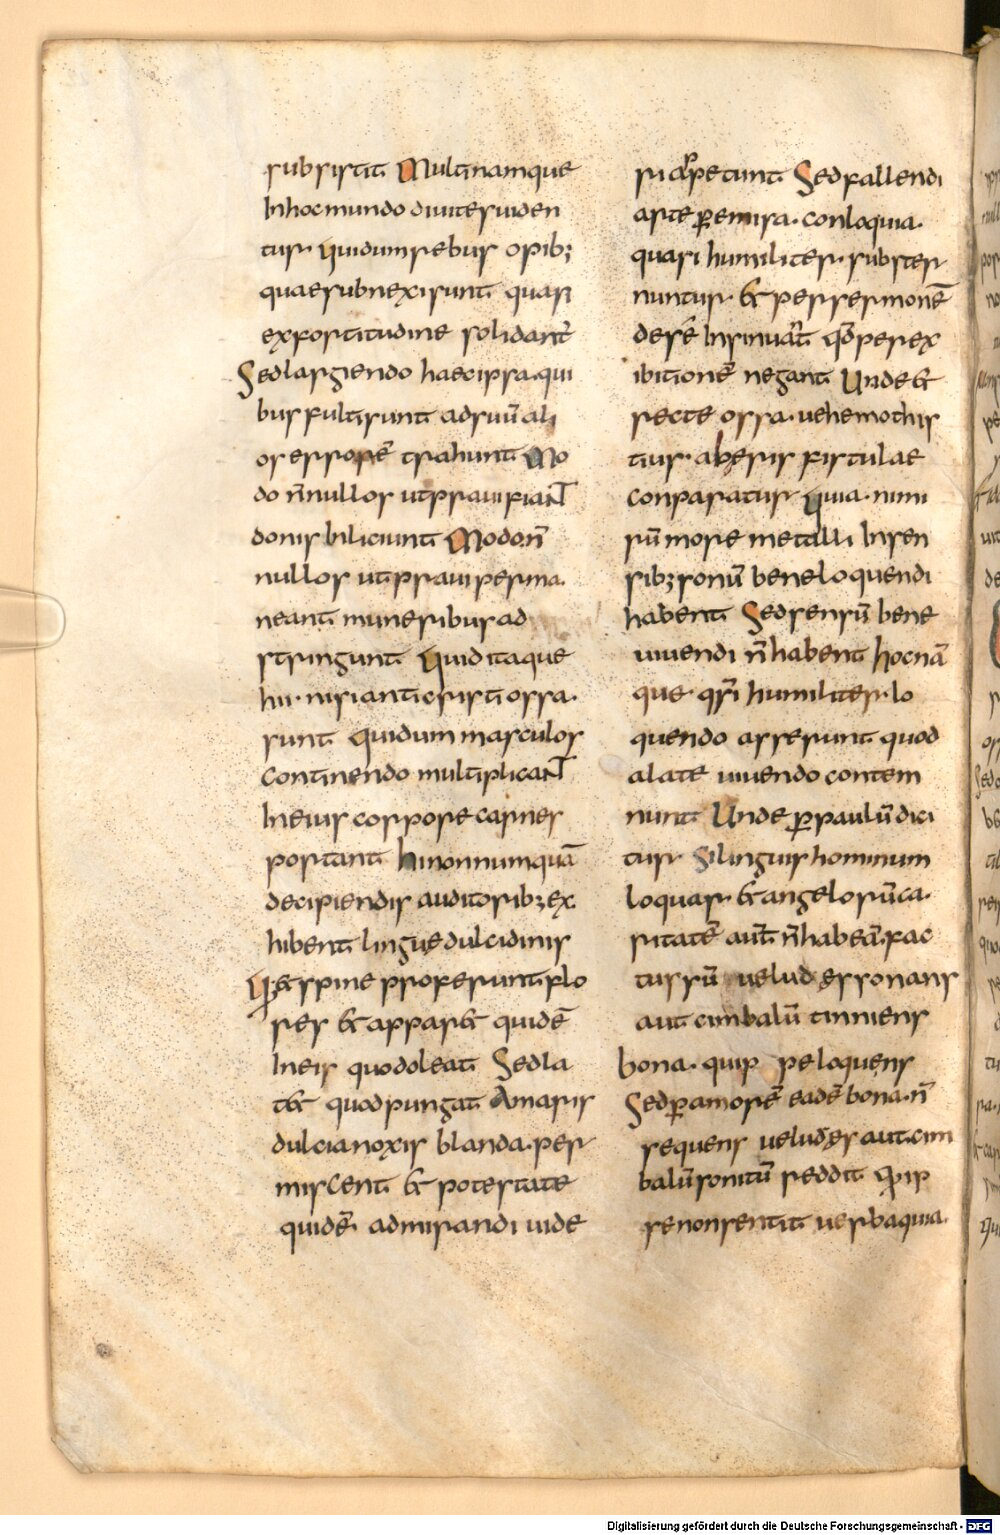 subsistit Multi namque
In hoc mundo divites viden
tur qui dum rebus opib;
quae subnexi sunt quasi
ex fortitudine solidant̄
Sed largiendo haec ipsa qui
bus fulti sunt ad suū ali
os errorē trahunt Mo
do n̄nullos ut pravi fiant
donis biliciunt Modo n̄
nullos ut pravi perma
neant muneribus ad
stringunt Quid itaque
hii nisi anticristi ossa
sunt qui dum masculos
continendo multiplicant
In eius corpore carnes
portant hi nonnumquā
decipiendis auditorib; ex
hibent lingue dulcidinis
q; & spine proferunt flo
res & appar& quidē
In eis quod oleat Sed la
t& quod pungat Amaris
dulcia noxis blanda per
miscent & potestate
quidē admirandi vide
ri appetunt Sed fallendi
arte ꝑemisa conloquia
quasi humiliter subster
nuntur & per sermonē
de se Insinuant̄ qd̄ per ex
ibitionē negant Unde &
recte ossa vehemothis
tius aberis fistulae
conparatur Quia nimi
rū more metalli Insen
sib; sonū bene loquendi
habent Sed sensū bene
vivendi n̄ habent hoc nā
que qs̄i humiliter lo
quendo asserunt quod
alate vivendo contem
nunt Unde ꝑ paulū dici
tur Si linguis hominum
loquar & angelorū ca
ritatē aut̄ n̄ habeā fac
tus sū velud es sonans
aut cimbalū tinniens
bona quip pe loquens
Sed ꝑ amorē eadē bona n̄
sequens velud es aut cim
balū sonitū reddit Q ip
se non sentit verba quia
Digitalisierung gefördert durch die Deutsche Forschungsgemeinschaft - DFG